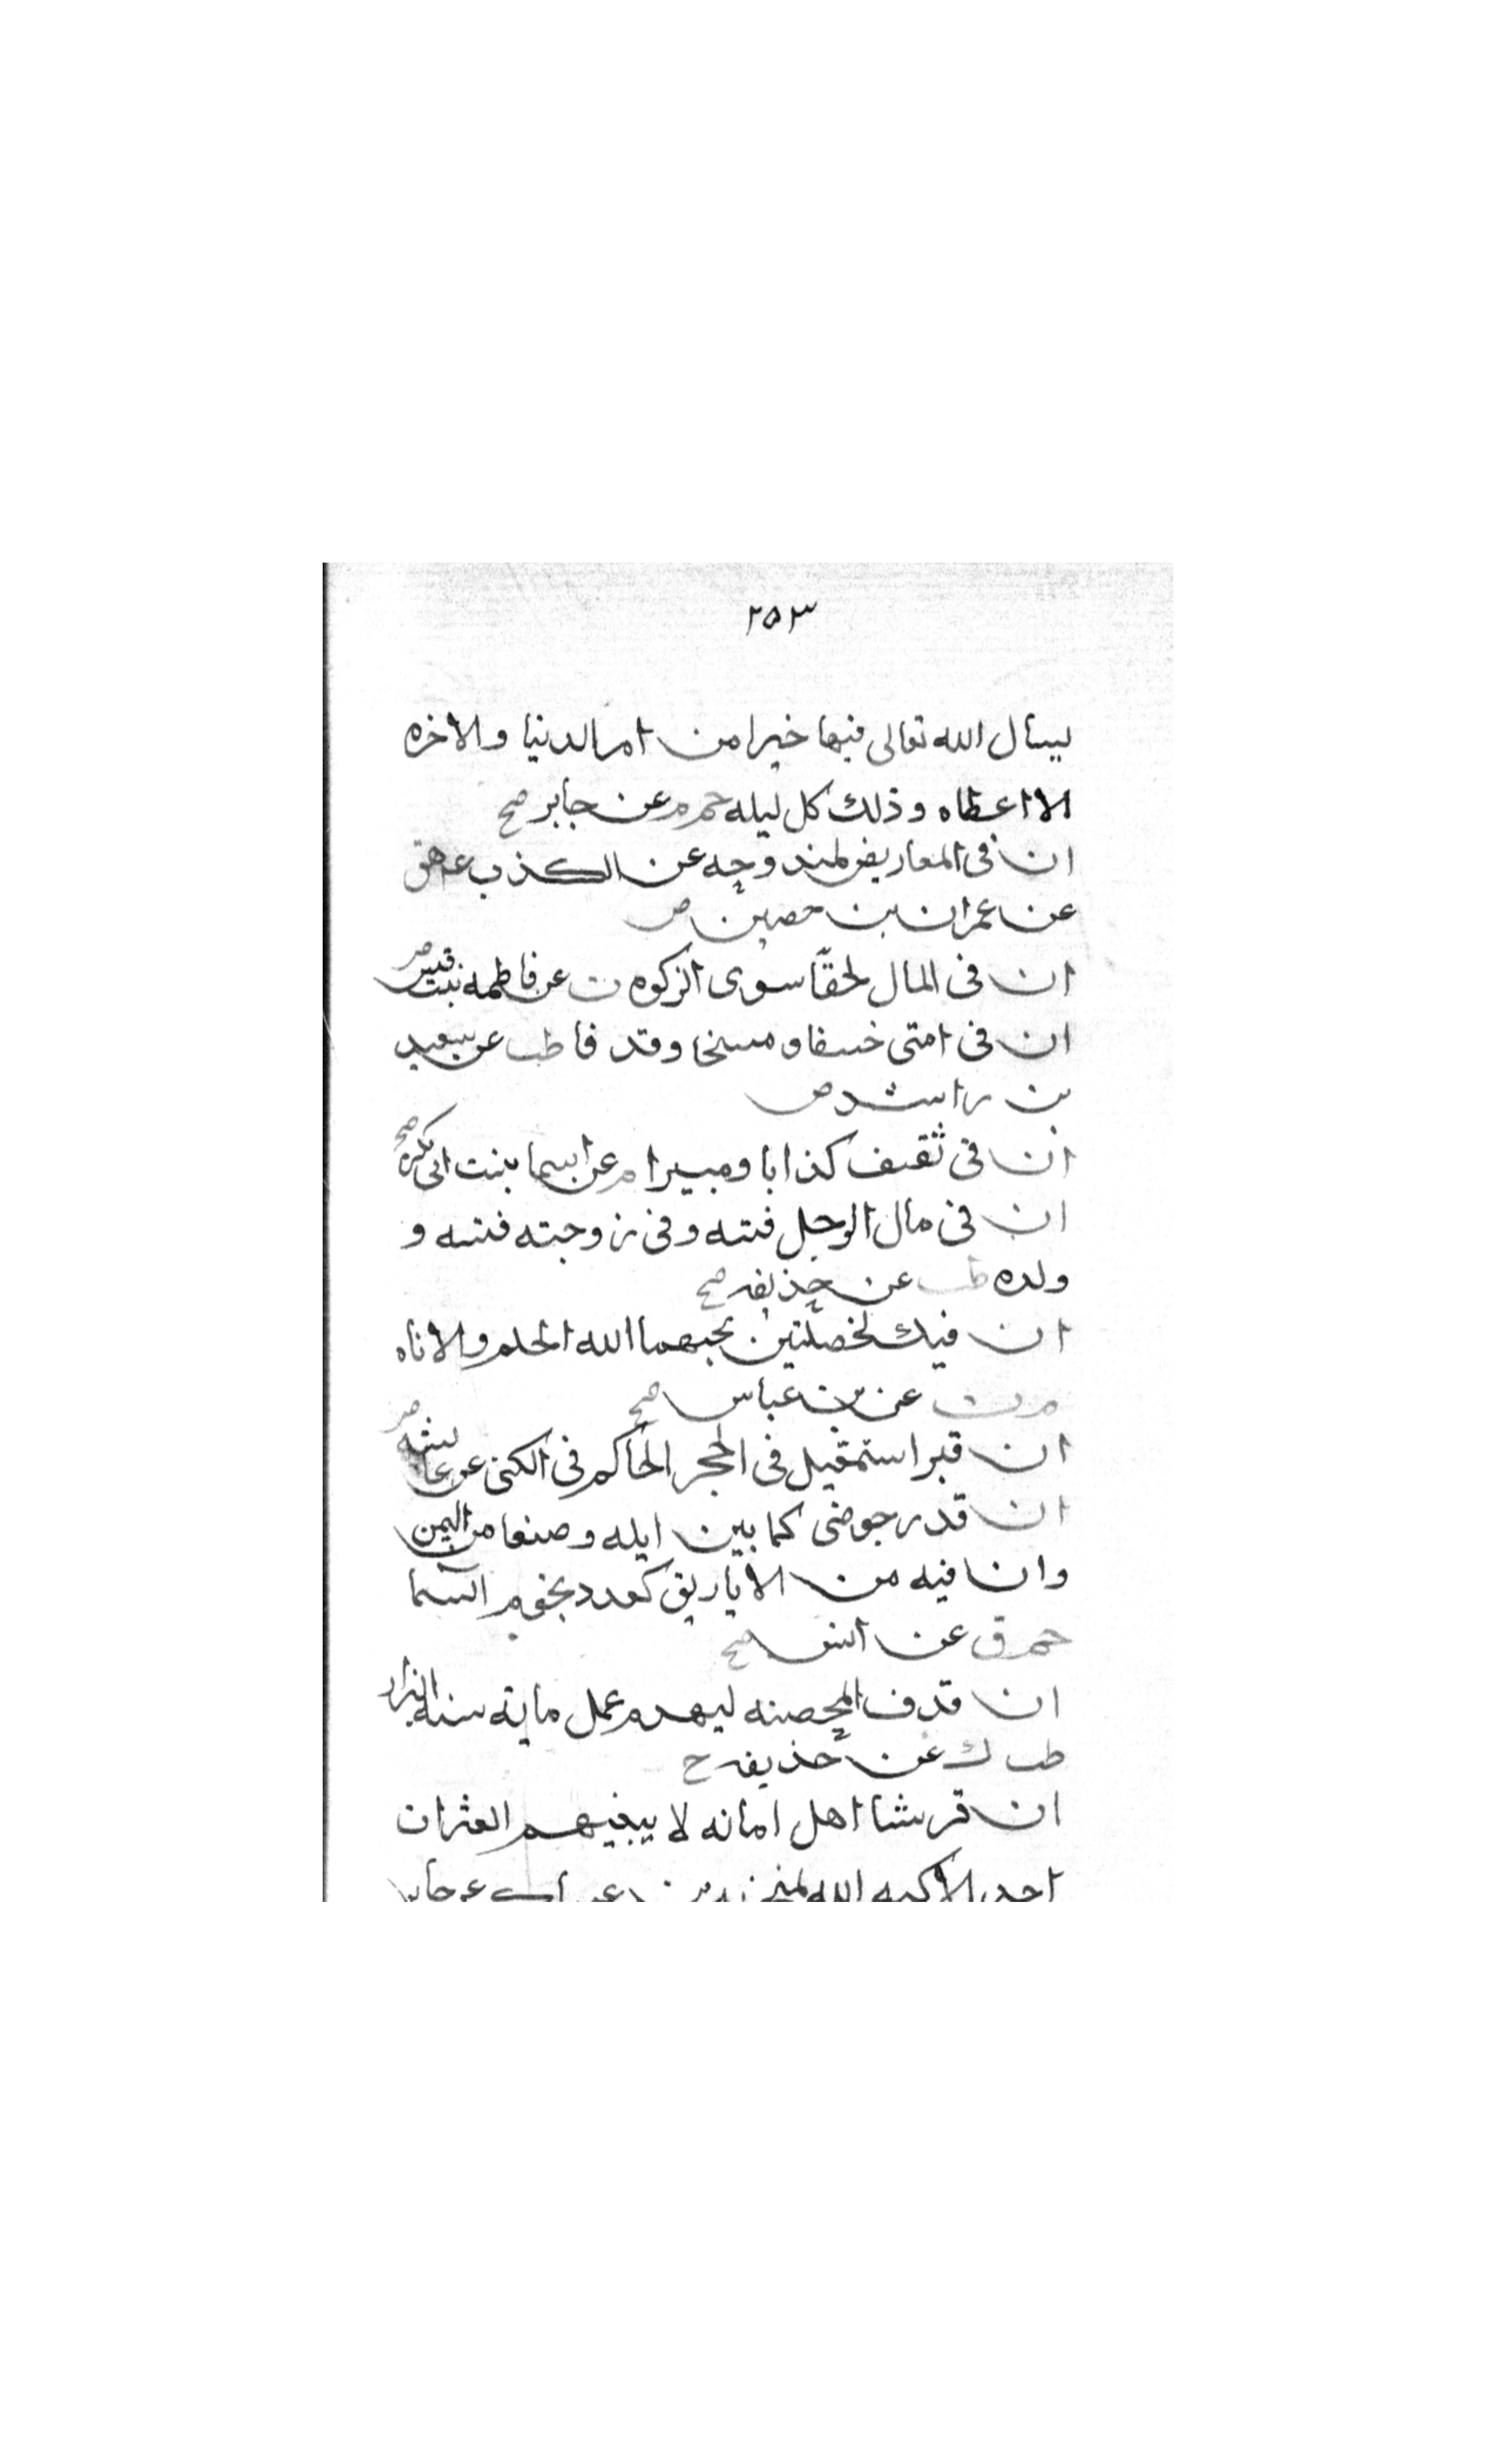 ٢٥٣
يسأل الله تعالى فيها خيرا من امر الدنيا والاخره
الا اعطاه وذلك كل ليله حم م عن جابر صح
ان فى المعاريض لمندوحه عن الكذب عد هق
عن عمران بن حصين ض
ان فى المال لحقّا سوى الزكوه ت عن فاطمه بنت قيس ض
ان فى امتى خسفا ومسخا وقذفا طب عن سعيد
بن راشد ض
ان فى ثقيف كذابا ومبيرا م عن اسما بنت ابى بكر صح
ان فى مال الرجل فتنه وفى زوجته فتنه و
ولده طب عن حذيفه صح
ان فيك لخصلتين يحبهما الله الحلم والاناه
م ت عن بن عباس صح
ان قبر اسمعيل فى الحجر الحاكم فى الكنى عن عايشه ض
ان قدر حوضى كما بين ايله وصنعا من اليمن
وان فيه من الاباريق كعدد نجوم السما
حم ق عن انس صح
ان قذف المحصنه ليهدم عمل ماية سنه البزار
طب ك عن حذيفه ح
ان قريشا اهل امانه لا يبغيهم العثرات
احد الا كبه الله لمنخريه